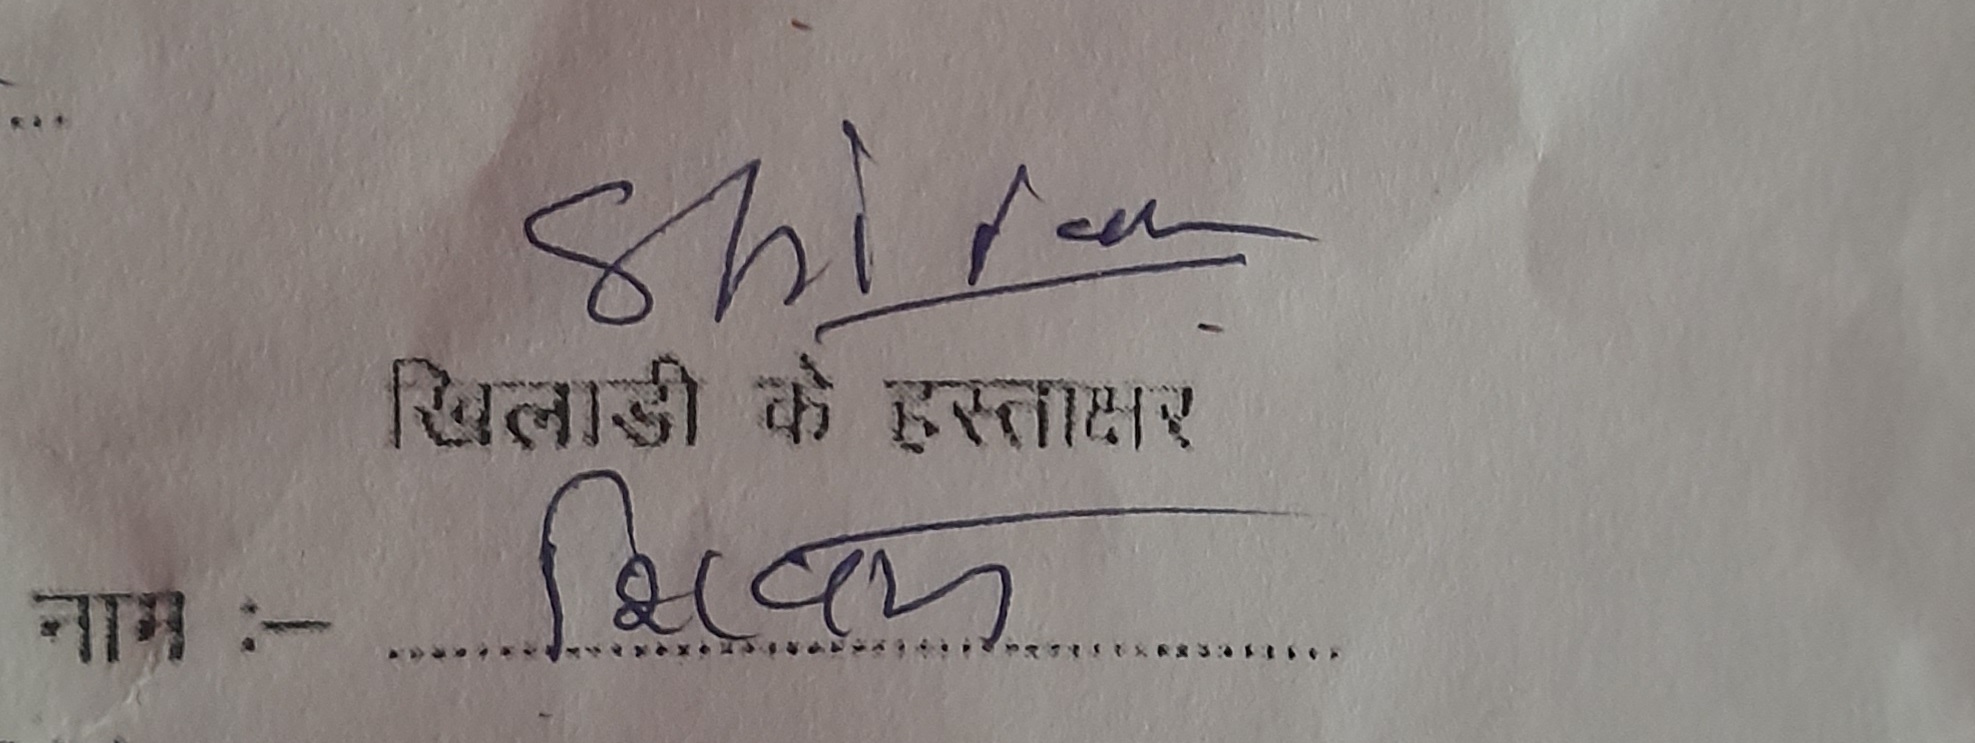 Shivam
खिलाडी के हस्ताक्षर
नाम :- शिवम